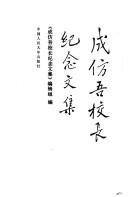 成仿吾校长
纪念文集
《成仿吾校长纪念文集》编辑组 编
中国人民大学出版社